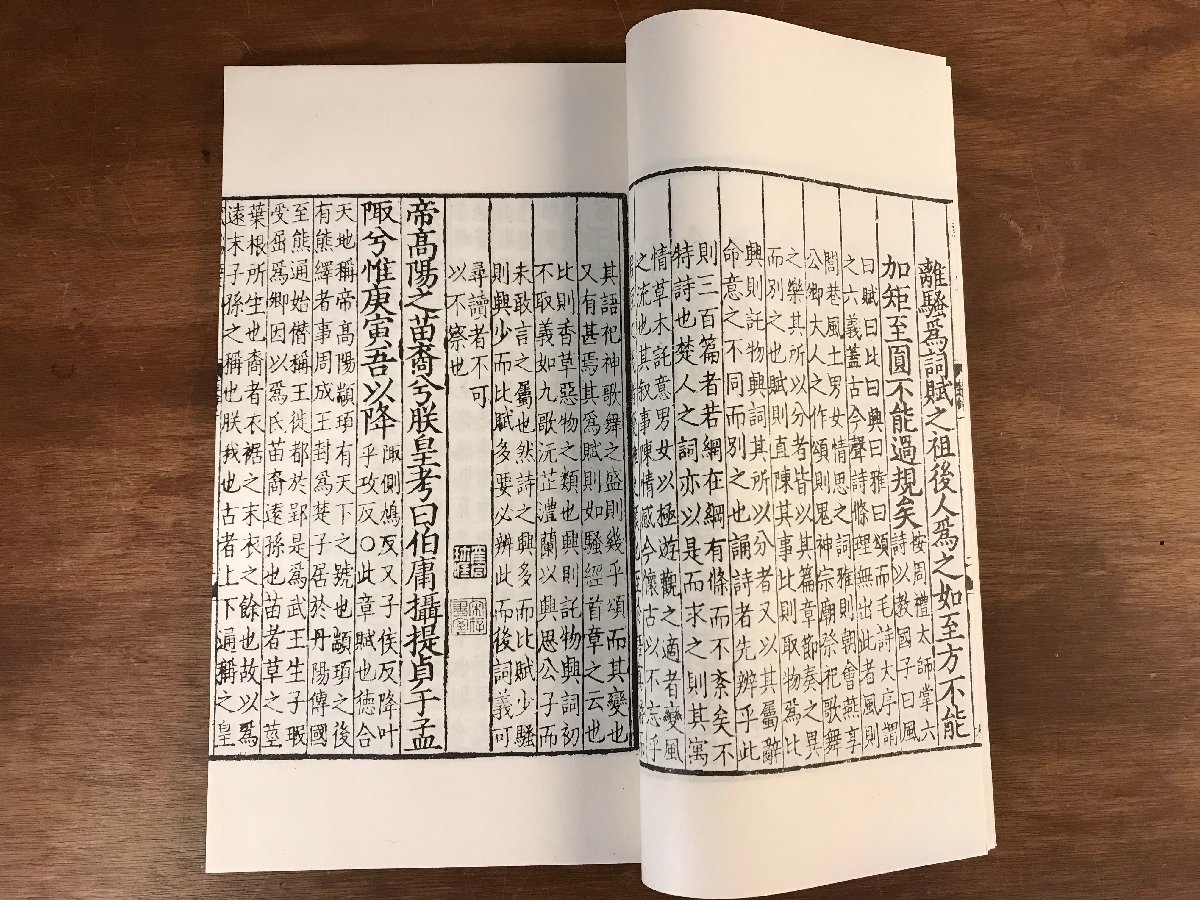 離騷爲詞賦之祖後人爲之如至方不能
加矩至圓不能過規矣
按周禮太師掌六
詩以教國子曰風
曰賦曰比曰興曰雅曰頌而毛詩大序謂
之六義蓋古今聲詩條理無出此者風則
閭巷風土男女情思之詞雅則朝會燕享
公卿大人之作頌則鬼神宗廟祭祀歌舞
之樂其所以分者皆以其篇章節奏之異
而別之也賦則直陳其事比則取物爲比
興則託物興詞其所以分者又以其屬辭
命意之不同而別之也誦詩者先辨乎此
則三百篇者若網在綱有條而不紊矣不
特詩也楚人之詞亦以是而求之則其寓
情草木託意男女以極遊觀之適者變風
之流也其叙事陳情感今懷古以不忘乎
其語祀神歌舞之盛則幾乎頌而其變也
又有甚焉其爲賦則如騷經首章之云也
比則香草惡物之類也興則託物興詞初
不取義如九歌沅芷澧蘭以興思公子而
未敢言之屬也然詩之興多而比賦少騷
則興少而比賦多要必辨此而後詞義可
尋讀者不可
以不察也
帝高陽之苗裔兮朕皇考曰伯庸攝提貞于孟
陬兮惟庚寅吾以降
陬側鳩反又子侯反降叶
乎攻反○此章賦也德合
天地稱帝高陽顓頊有天下之號也顓頊之後
有熊繹者事周成王封爲楚子居於丹陽傳國
至熊通始僭稱王徙都於郢是爲武王生子瑕
受屈爲卿因以爲氏苗裔遠孫也苗者草之莖
葉根所生也裔者衣裾之末衣之餘也故以爲
遠末子孫之稱也朕我也古者上下通稱之皇